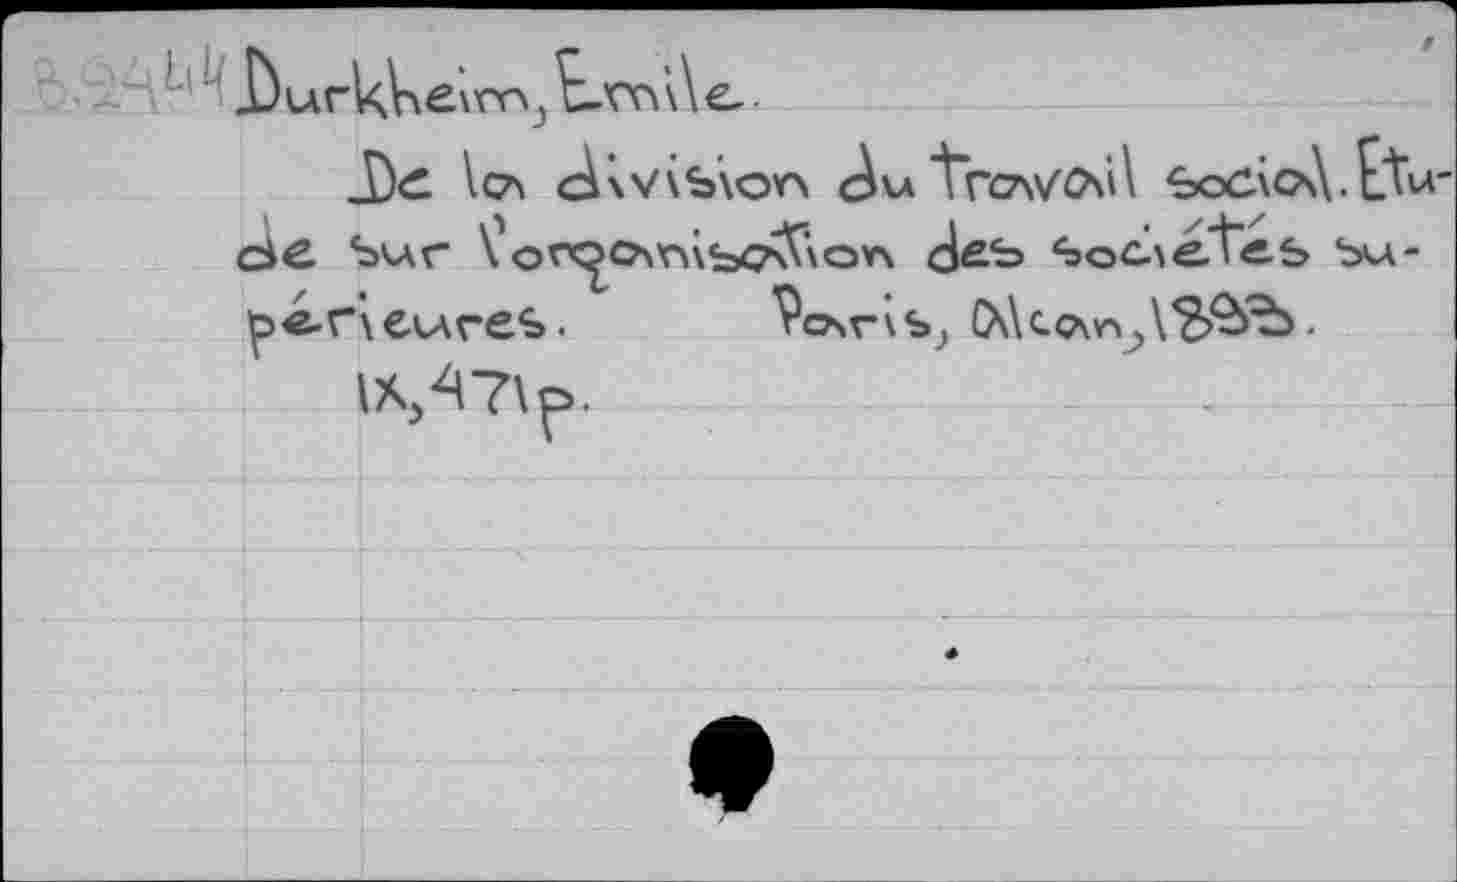 Durkheim, Emile.
De la division du travail social. Etu-
de sur l'organisation des sociétés su-
périeures. Paris, Alcan, 1893.
IX, 471 p.